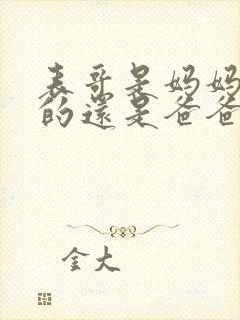 表哥是妈妈
的还是爸爸
金大